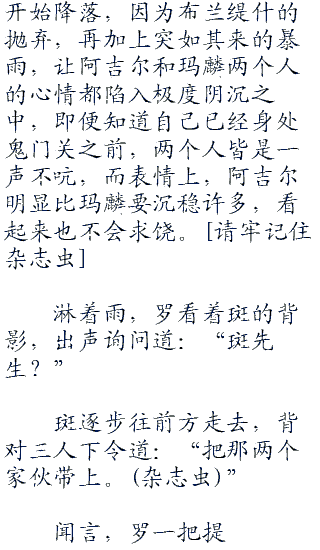 开始降落，因为布兰缇什的
抛弃，再加上突如其来的暴
雨，让阿吉尔和玛麟两个人
的心情都陷入极度阴沉之
中，即便知道自己已经身处
鬼门关之前，两个人皆是一
声不吭，而表情上，阿吉尔
明显比玛麟要沉稳许多，看
起来也不会求饶。[请牢记住
杂志虫]
淋着雨，罗看着斑的背
影，出声询问道：“斑先
生？”
斑逐步往前方走去，背
对三人下令道：“把那两个
家伙带上。(杂志虫)”
闻言，罗一把提